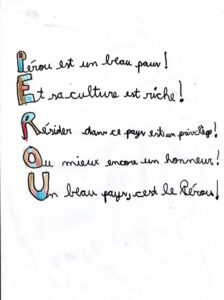 Pérou est un beau pays!
Et sa culture est riche!
Résider dans ce pays est un privilège!
Ou mieux encore un honneur!
Un beau pays, c'est le Pérou!